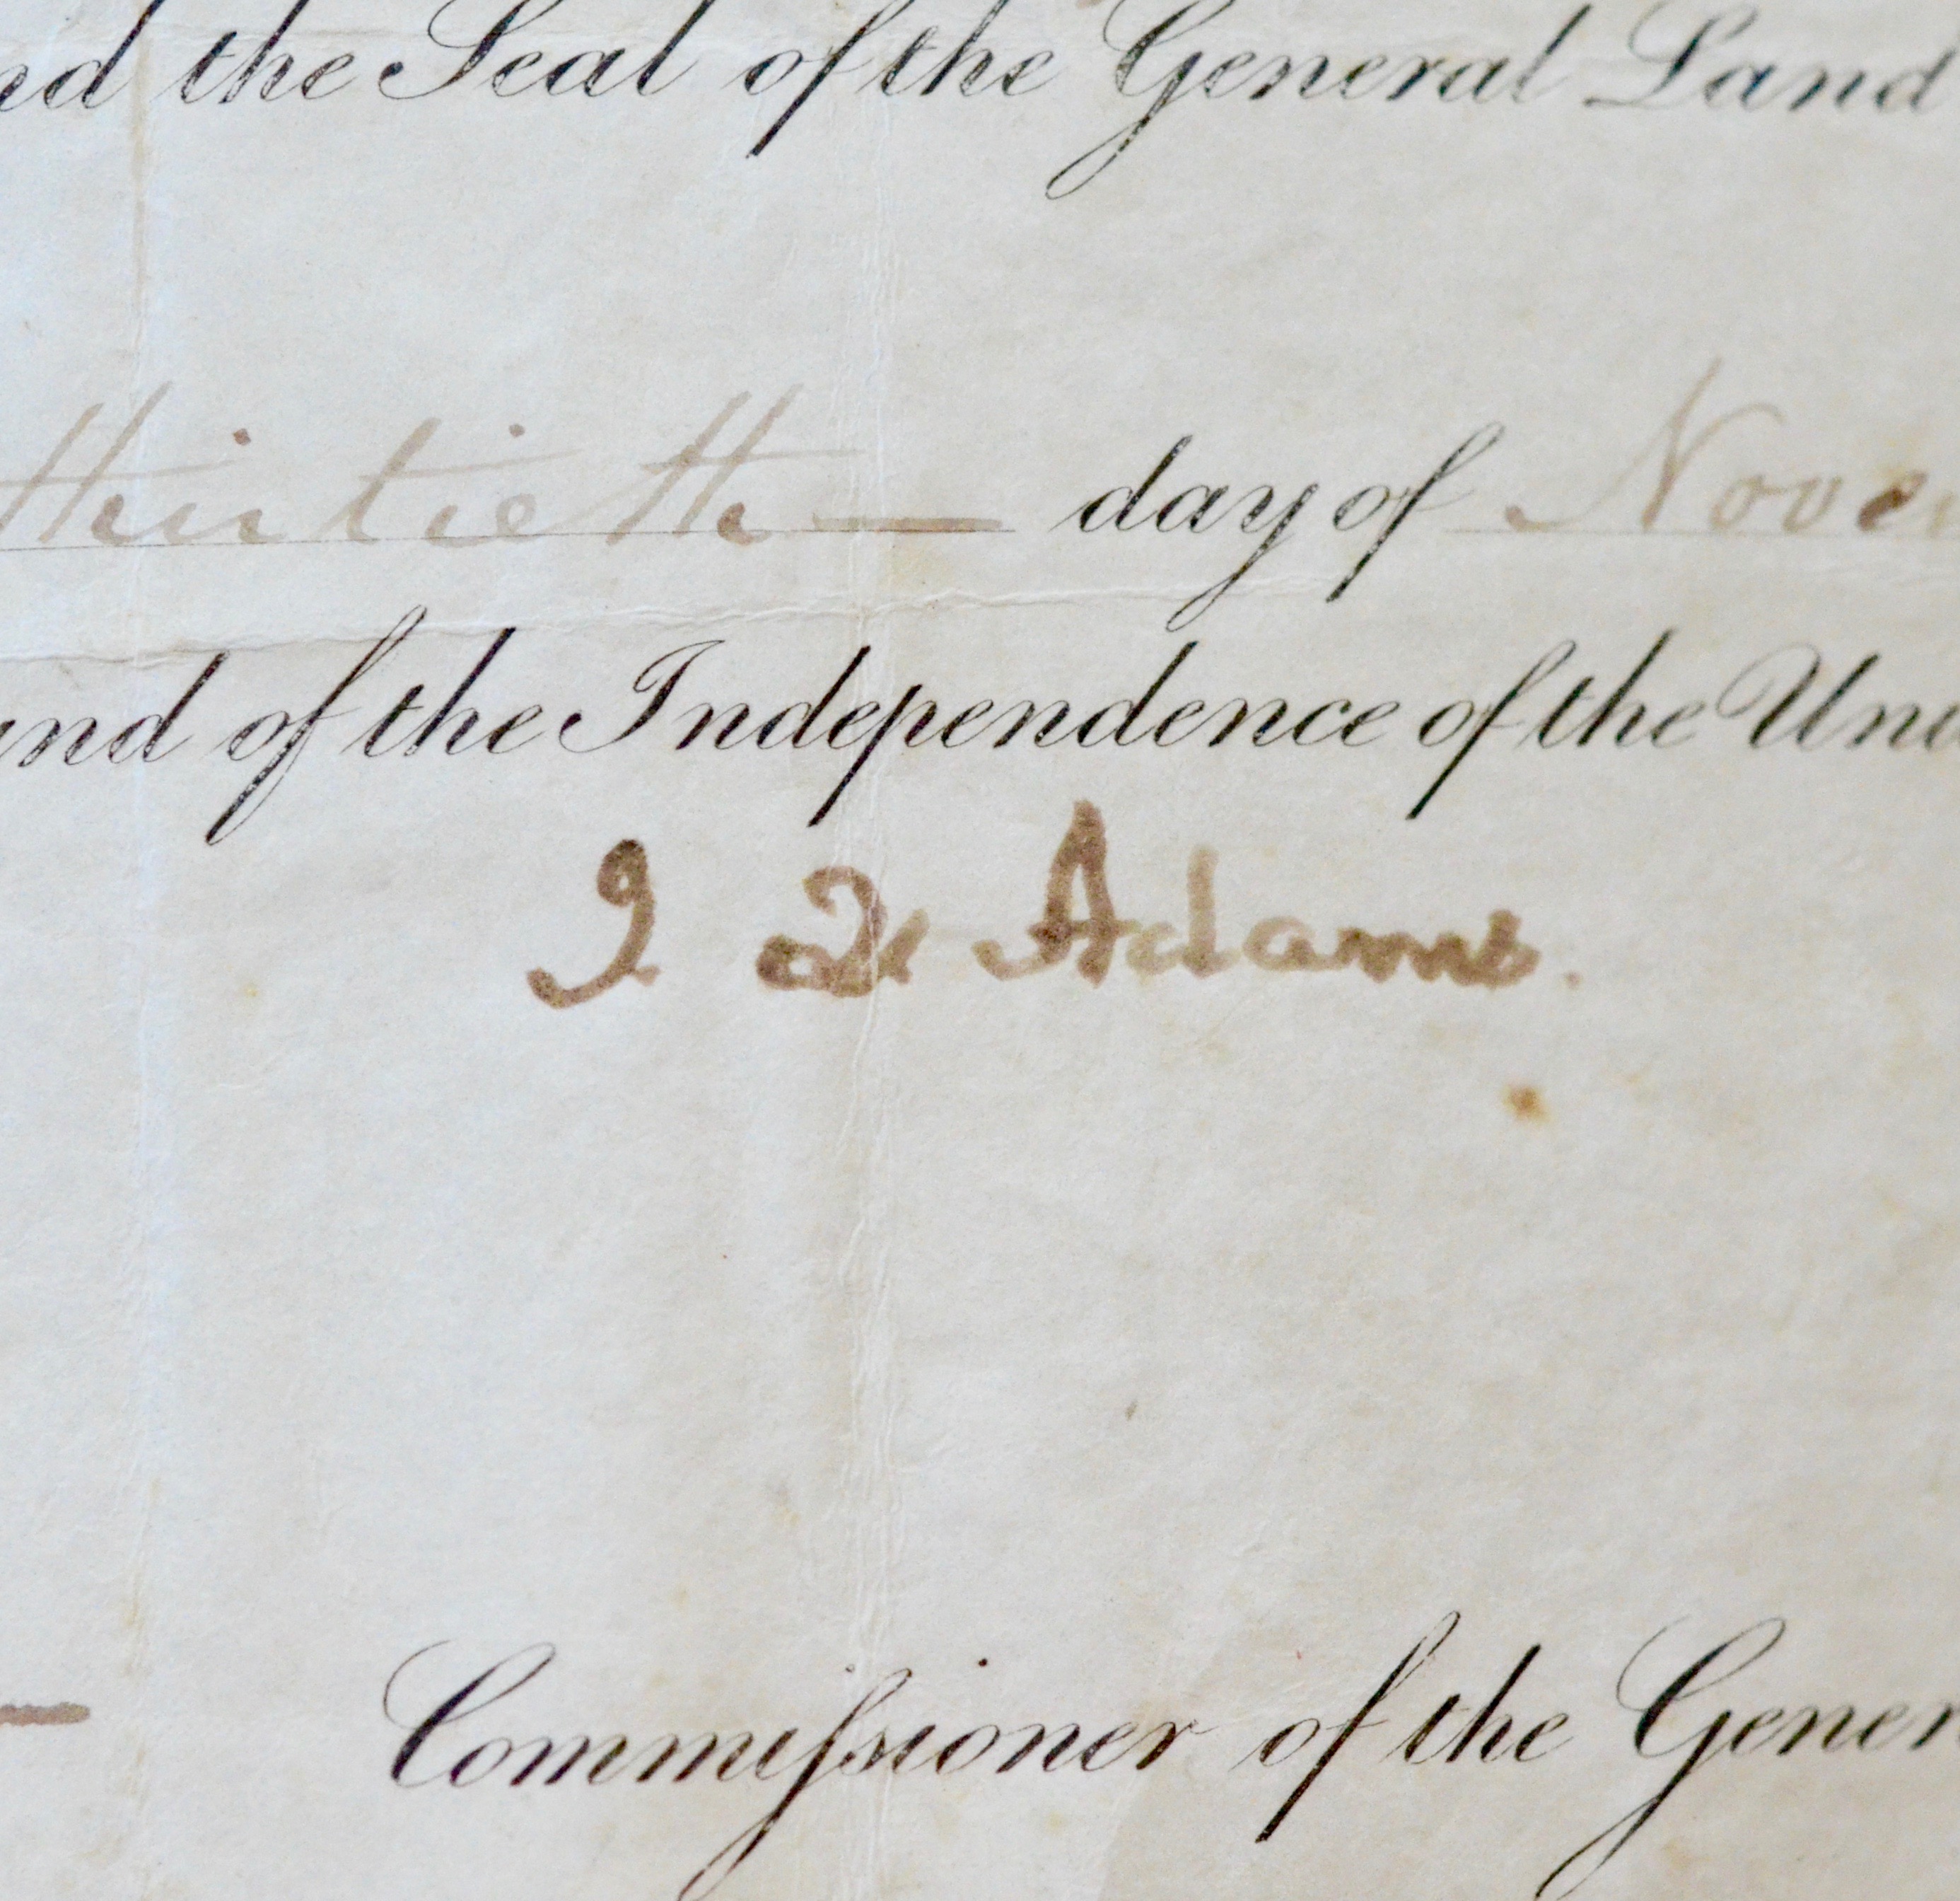 nd the Seal of the General Land
thirtieth — day of Novem
and of the Independence of the Uni
J. Q. Adams.
— Commissioner of the Gener